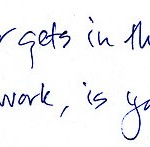 gets in th
work, is yo